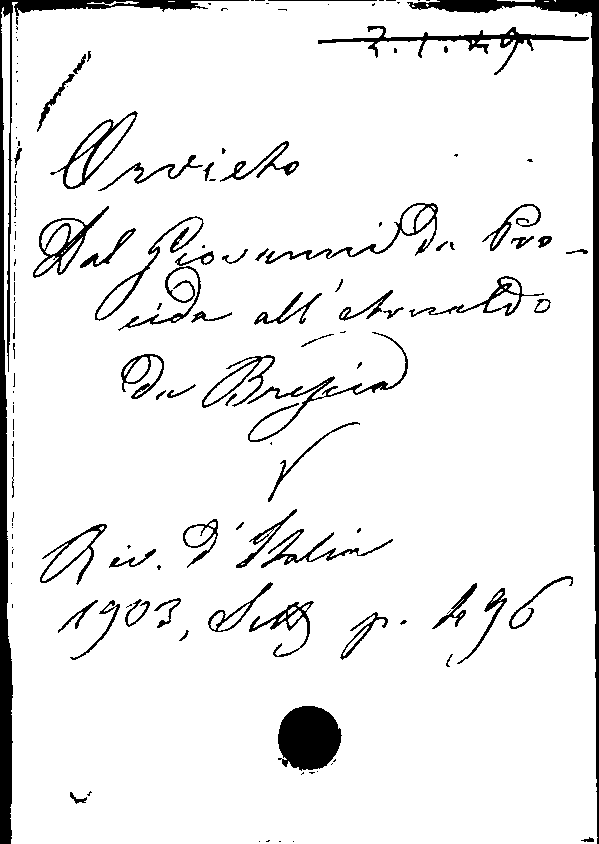 2.1.49
Orvieto
Dal Giovanni da Pro-
cida all'Arnaldo
da Brescia
Riv. d'Italia
1903, Sett p. 496